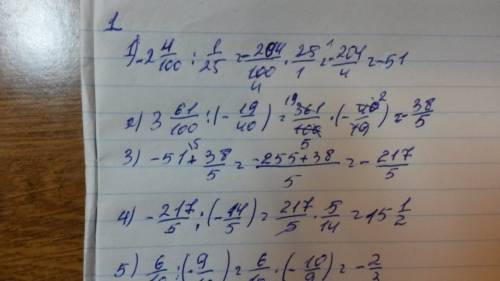 1
1) -2 4/100 : 1/25 = -204/100 4 · 25/1 1 = -204/4 = -51
2) 3 61/100 : (- 19/40) = 19 361/100 5 · (- 40/19 2) = - 38/5
3) -51 \5 + 38/5 = -255+38/5 = - 217/5
4) - 217/5 : (- 14/5) = 217/5 · 5/14 = 15 1/2
5) 6/10 : (- 9/10) = 6/10 · (- 10/9) = - 2/3